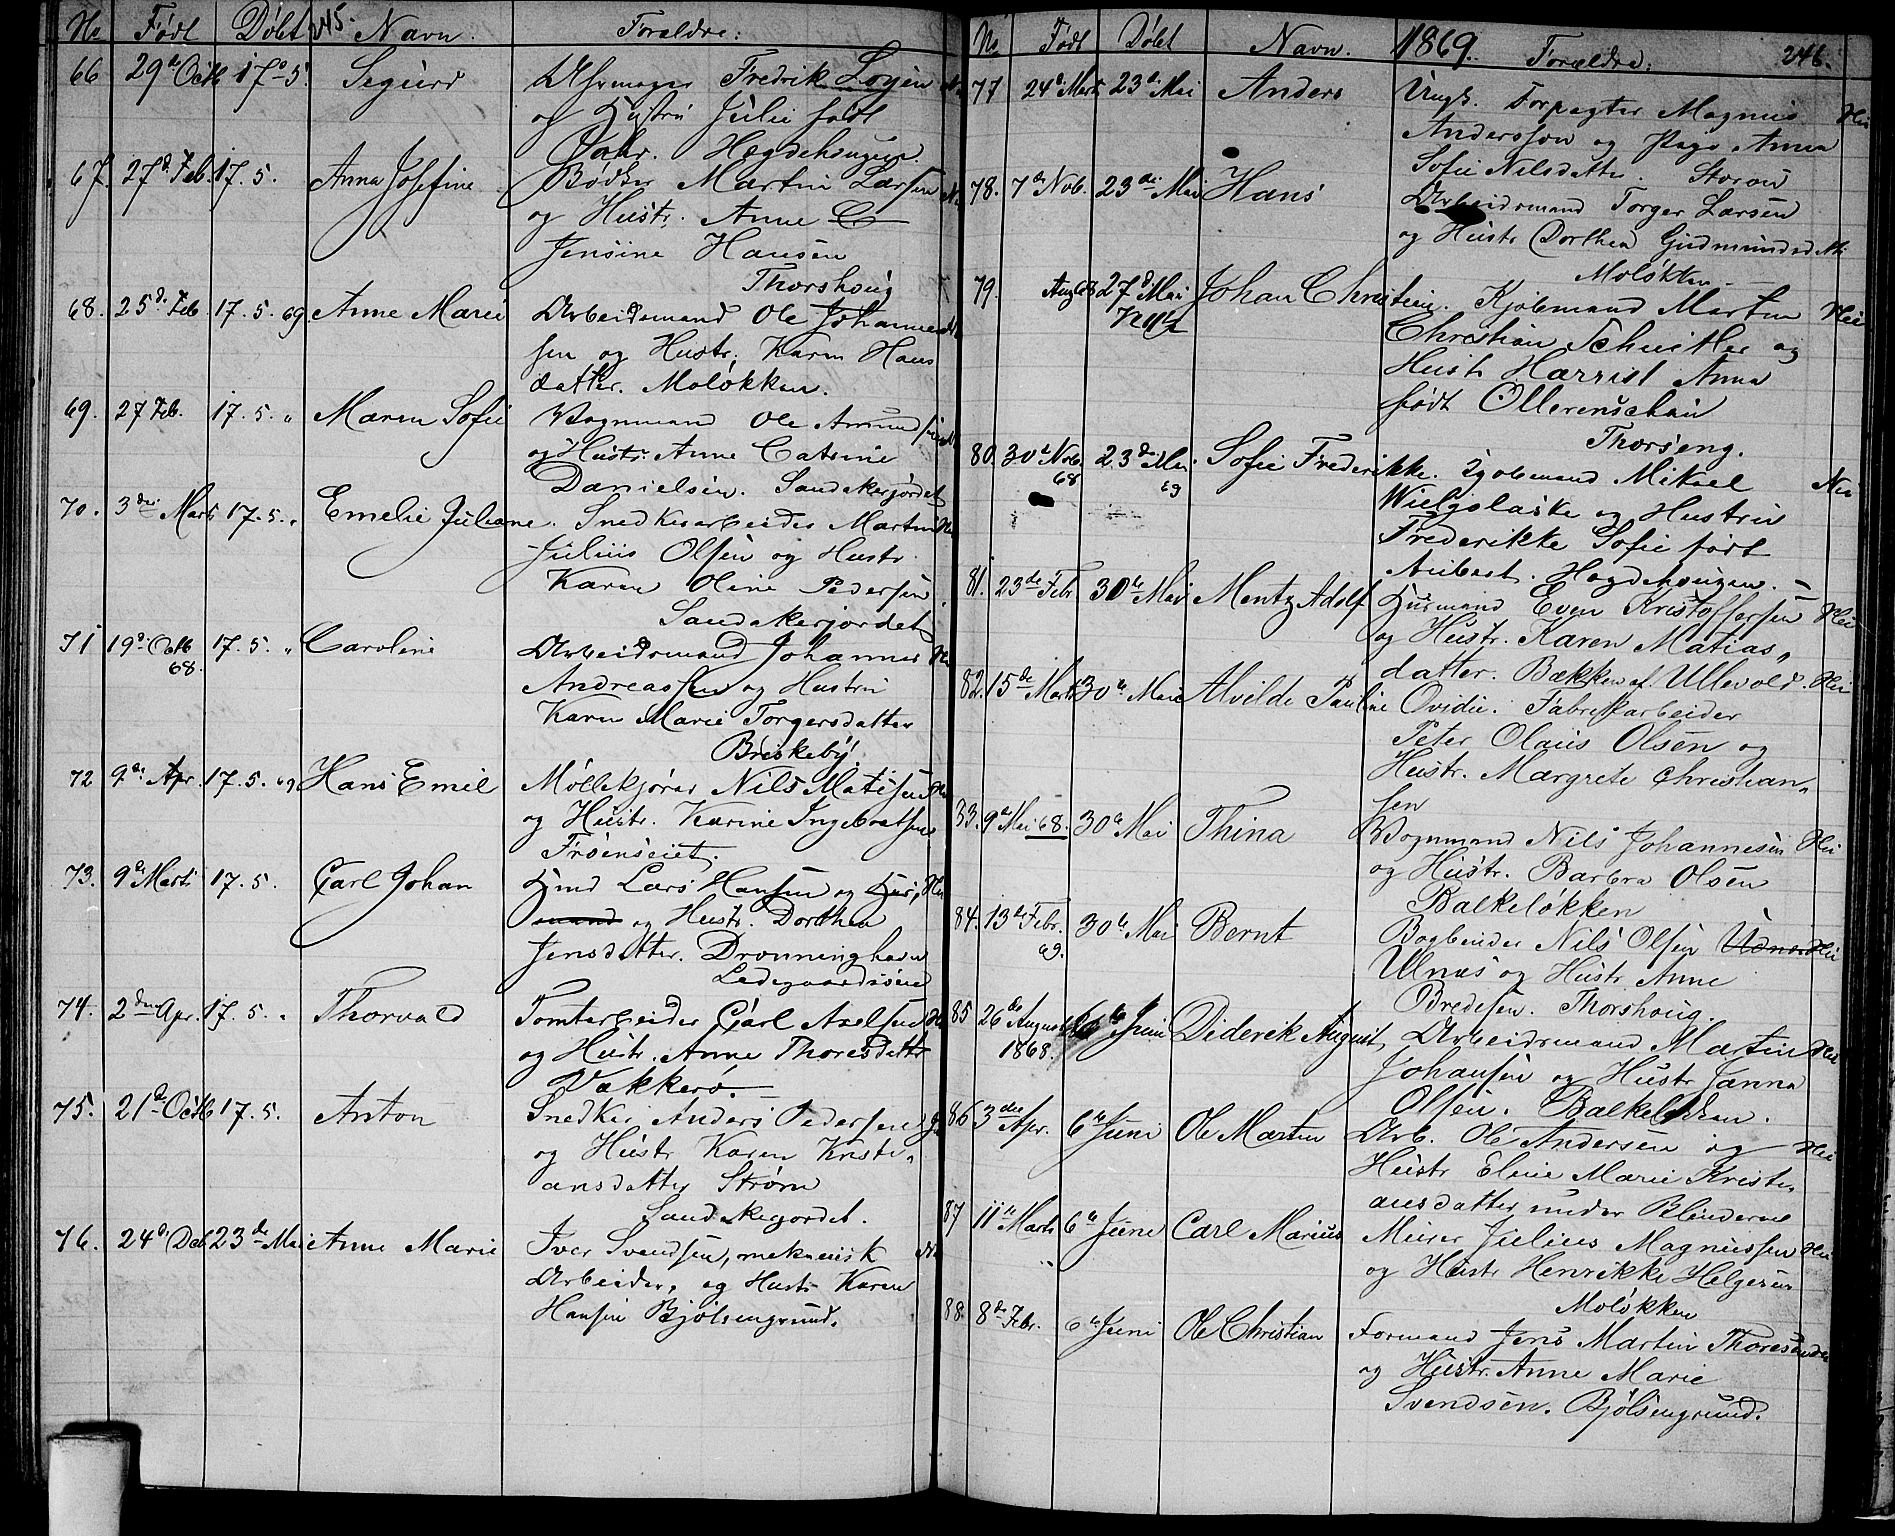 No Födt Döbt 245. Navn. Forældre:
66 29de Octb 17de 5. Sigurd Uhrmager Fredrik Logen
og Hustru Julie født
Dahr. Hægdehaugen.
67. 27d Feb. 17. 5. Anna Josefine Bödker Martin Larsen
og Hustr. Anne C
Jensine Hansen
Thorshoug
68. 25d. Feb 17. 5. 69. Anne Marie Arbeidsmand Ole Johanne
sen og Hustr. Karen Hans
datter. Moløkken.
69. 27 Feb. 17. 5. " Maren Sofie Vognmand Ole Amund
og Hustr. Anne Catrine
Danielsen. Sandakerjordet
70. 3die Marts 17. 5. " Emelie Juliane. Snedkerarbeider Martin
Julius Olsen og Hustr.
Karen Oline Pedersen.
Sandakerjordet
71 19d. Octb 17. 5. " Caroline Arbeidsmand Johannes
68.
Andreassen og Hustru
Karen Marie Torgersdatter
Briskeby.
72 9de Apr. 17. 5. 69 Hans Emil Møllekjører Nils Matisen
og Hustr. Karine Ingebretsen
Frøenseiet.
73. 9de Marts 17. 5. Carl Johan Hmd Lars Hansen og Hus,
mand og Hustr. Dorthea
Jensdatter. Dronninghavn
Ladegaardsøen
74. 2den Apr. 17. 5. " Thorvald Tomtarbeider Carl Axelsen
og Hustr. Anne Thoresdatter
Vækkerø.
75. 21de Octb 17. 5. Anton Snedker Anders Pedersen
og Hustr Karen Kristi„
ansdatter Strøm
Sandakerjordet.
76. 24d Deb 23de Mai Anne Marie Iver Svendsen, mekanisk
Arbeider, og Hustr Karen
Hansen Bjølsengrund.
No Födt Döbt Navn. 1869. Forældre: 246.
77 24d Marts 23d Mai Anders Ungk. Forpagter Magnus
Andersson og Pige Anna
Sofie Nilsdatter. Storøen
78. 7de Nob. 23de Mai Hans Arbeidsmand Torger Larsen
og Hustr Dorthea Gudmundsd
Moløkken
79. Aug 68 27d Mai Johan Christian. Kjøbmand Martin
Christian Schuitler og
Hustr Harriet Anna
født Ollerenschau
Thorseng.
80. 30te Nob. 23de Mai Sofie Frederikke. Kjøbmand Mikael
68 69
Wielgolaske og Hustru
Frederikke Sofie født
Aubert. Hegdehaugen.
81. 23de Febr 30te Mai Mentz Adolf Husmand Even Kristoffersen
og Hustr. Karen Matias„
datter. Bækken af. Ullevold.
82. 15de Marts 30te Mai Alvilde Pauline Ovidie. Fabrikarbeider
Peter Olaus Olsen og
Hustr. Margrete Christian„
sen
83. 9de Mai 68. 30te Mai Thina Vognmand Nils Johannesen
og Hustr. Barbra Olsen
Balkeløkken
84. 13de Febr. 30te Mai Bernt Bogbinder Nils Olsen Udnes
69.
Ulnæs og Hustr Anne
Bredesen. Thorshoug.
85 26de August 6te Juni Diderik August, Arbeidsmand Martin
1868.
Johansen og Hustr Janna
Olsen. Balkeløkken.
86 3die Apr. 6te Juni Ole Martin Arb. Ole Andersen og
Hustr Eline Marie Kristi„
ansdatter under Blindern
87 11te Marts 6te Juni Carl Marius Murer Julius Magnussen
og Hustr Henrikke Helgesen
Moløkken
88. 8de Febr. 6te Juni Ole Christian Formand Jens Martin Thoresen
og Hustr. Anne Marie
Svendsen. Bjølsengrund.